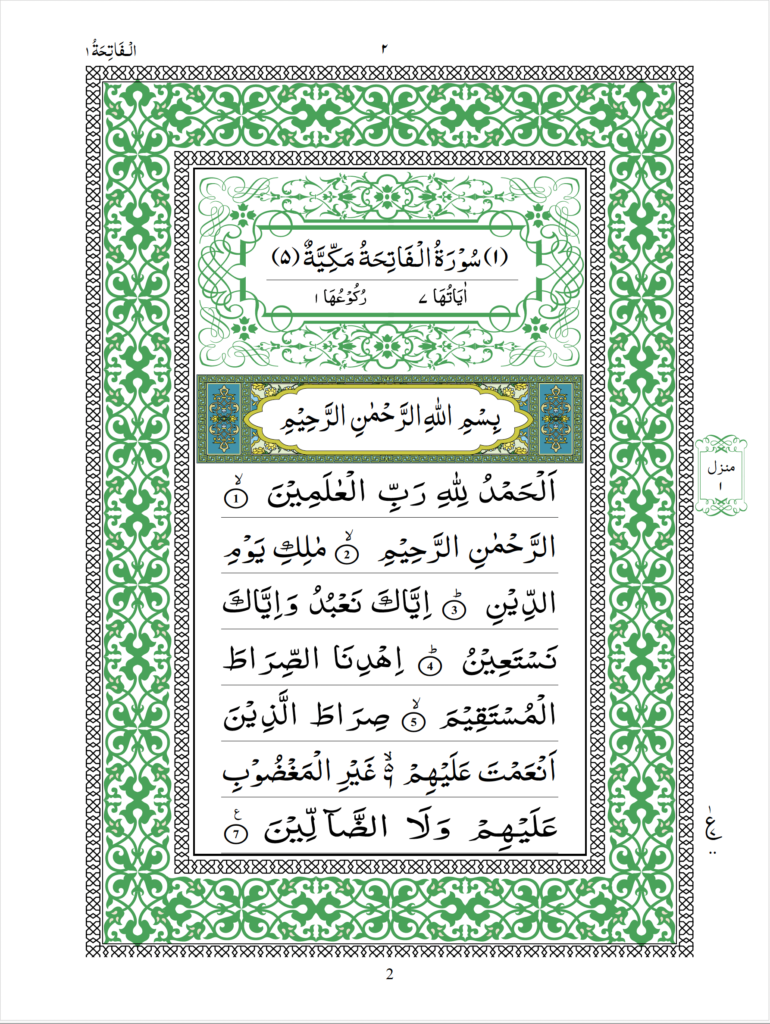 الۡفَاتِحَةُ ١
٢
(١) سُوۡرَةُ الۡفَاتِحَةُ مَكِّيَّةٌ (٥)
اٰيَاتُهَا ٧ رُكُوۡعُهَا ١
بِسۡمِ اللّٰهِ الرَّحۡمٰنِ الرَّحِيۡمِ
اَلۡحَمۡدُ لِلّٰهِ رَبِّ الۡعٰلَمِيۡنَ ۙ‏ 1
الرَّحۡمٰنِ الرَّحِيۡمِ ۙ‏ 2 مٰلِكِ يَوۡمِ
الدِّيۡنِ ؕ‏ 3 اِيَّاكَ نَعۡبُدُ وَاِيَّاكَ
نَسۡتَعِيۡنُ ؕ‏ 4 اِهۡدِنَا الصِّرَاطَ
الۡمُسۡتَقِيۡمَ ۙ‏ 5 صِرَاطَ الَّذِيۡنَ
اَنۡعَمۡتَ عَلَيۡهِمۡ ۙ۬ غَيۡرِ الۡمَغۡضُوۡبِ
عَلَيۡهِمۡ وَلَا الضَّآلِّيۡنَ 7 ع
منزل
١
ع
2